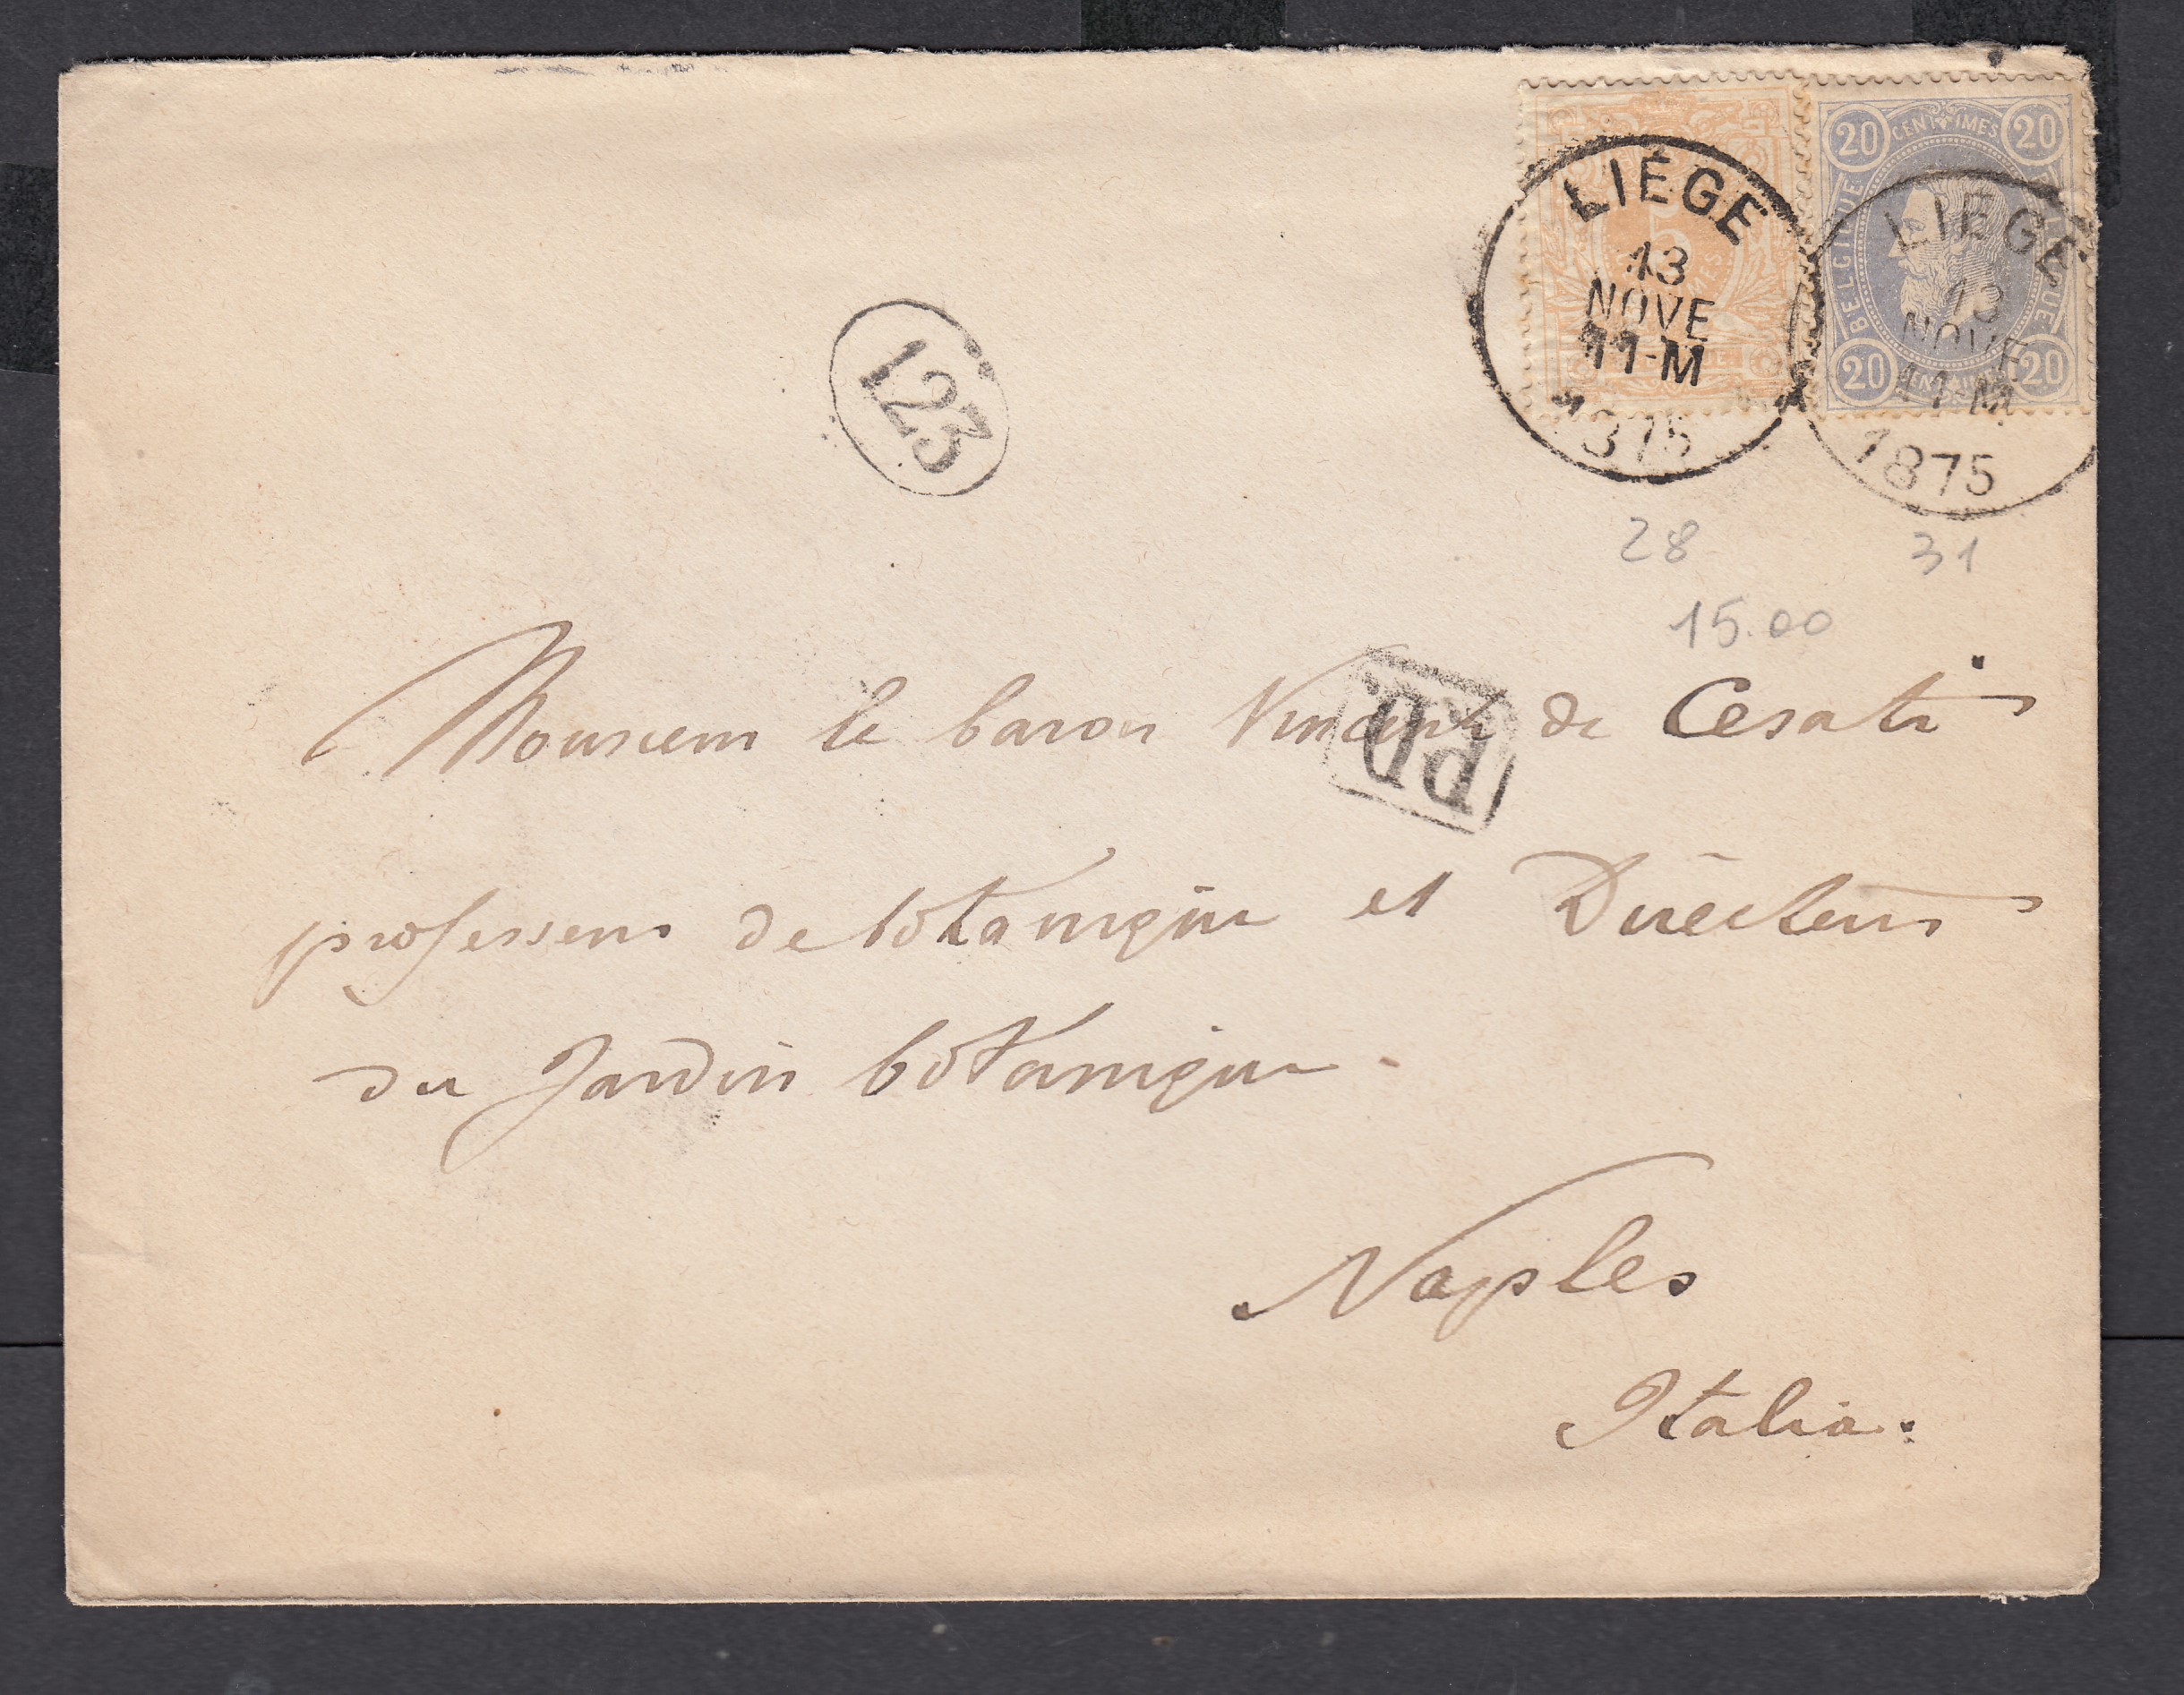 20 CENTIMES 20
BELGIQUE
20 20
5
LIÉGE
13
NOVE
11-M
1875
LIÉGE
13
NOVE
11-M
1875
123
28 31
15.00
PD
Monsieur le baron Vincent de Cesati
professeur de botanique et Directeur
du Jardin botanique
Naples
Italia.